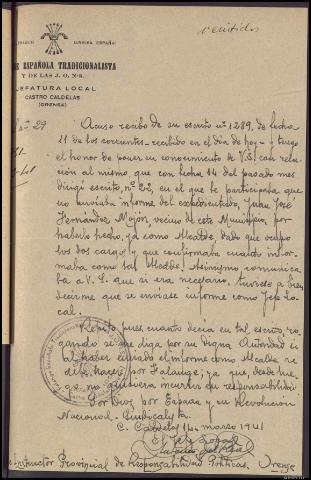 remitido
¡ARRIBA ESPAÑA!
E ESPAÑOLA TRADICIONALISTA
Y DE LAS J. O. N-S.
JEFATURA LOCAL
CASTRO CALDELAS
(ORENSE)
nº 29
Acuso recibo de su escrito nº 1289, de fecha
11 de los corrientes - recibido en el día de hoy - y tengo
el honor de poner en conocimiento de V.S. con rela-
ción al mismo que con fecha 14 del pasado mes
dirigí escrito, nº 22, en el que le participaba que
no enviaba informe del expedientado, Juan José
Fernández Mojón, vecino de este Municipio, por
haberlo hecho, ya como Alcalde, dado que ocupo
los dos cargos, y que confirmaba cuanto infor-
maba como tal Alcalde. Asimismo comunica-
ba a V.S. que si era necesario, tuviese a bien
decirme que se enviase informe como Jefe Lo-
cal.
Repito, pues, cuanto decía en tal escrito, ro-
gando se me diga por su digna Autoridad si
al haber enviado el informe como Alcalde he
de hacer por Falange, ya que, desde lue-
go, no quisiera incurrir en responsabilidad.
Por Dios, por España y su Revolución
Nacional-Sindicalista
C. Caldelas 14 marzo 1941
El Jefe Local
Instructor Provincial de Responsabilidades Políticas. Orense